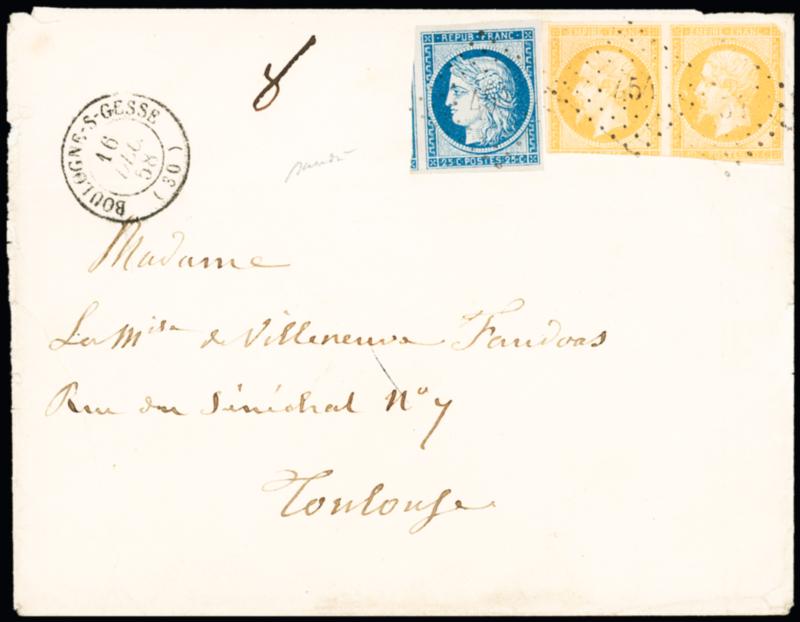 8
REPUB. FRANC.
25 C. POSTES 25 C.
EMPIRE FRANC.
EMPIRE FRANC.
BOULOGNE-S-GESSE
16
DEC
58
(30)
Madame
La Mise de Villeneuve Faudoas
Rue du Sénéchal N° 7
Toulouse